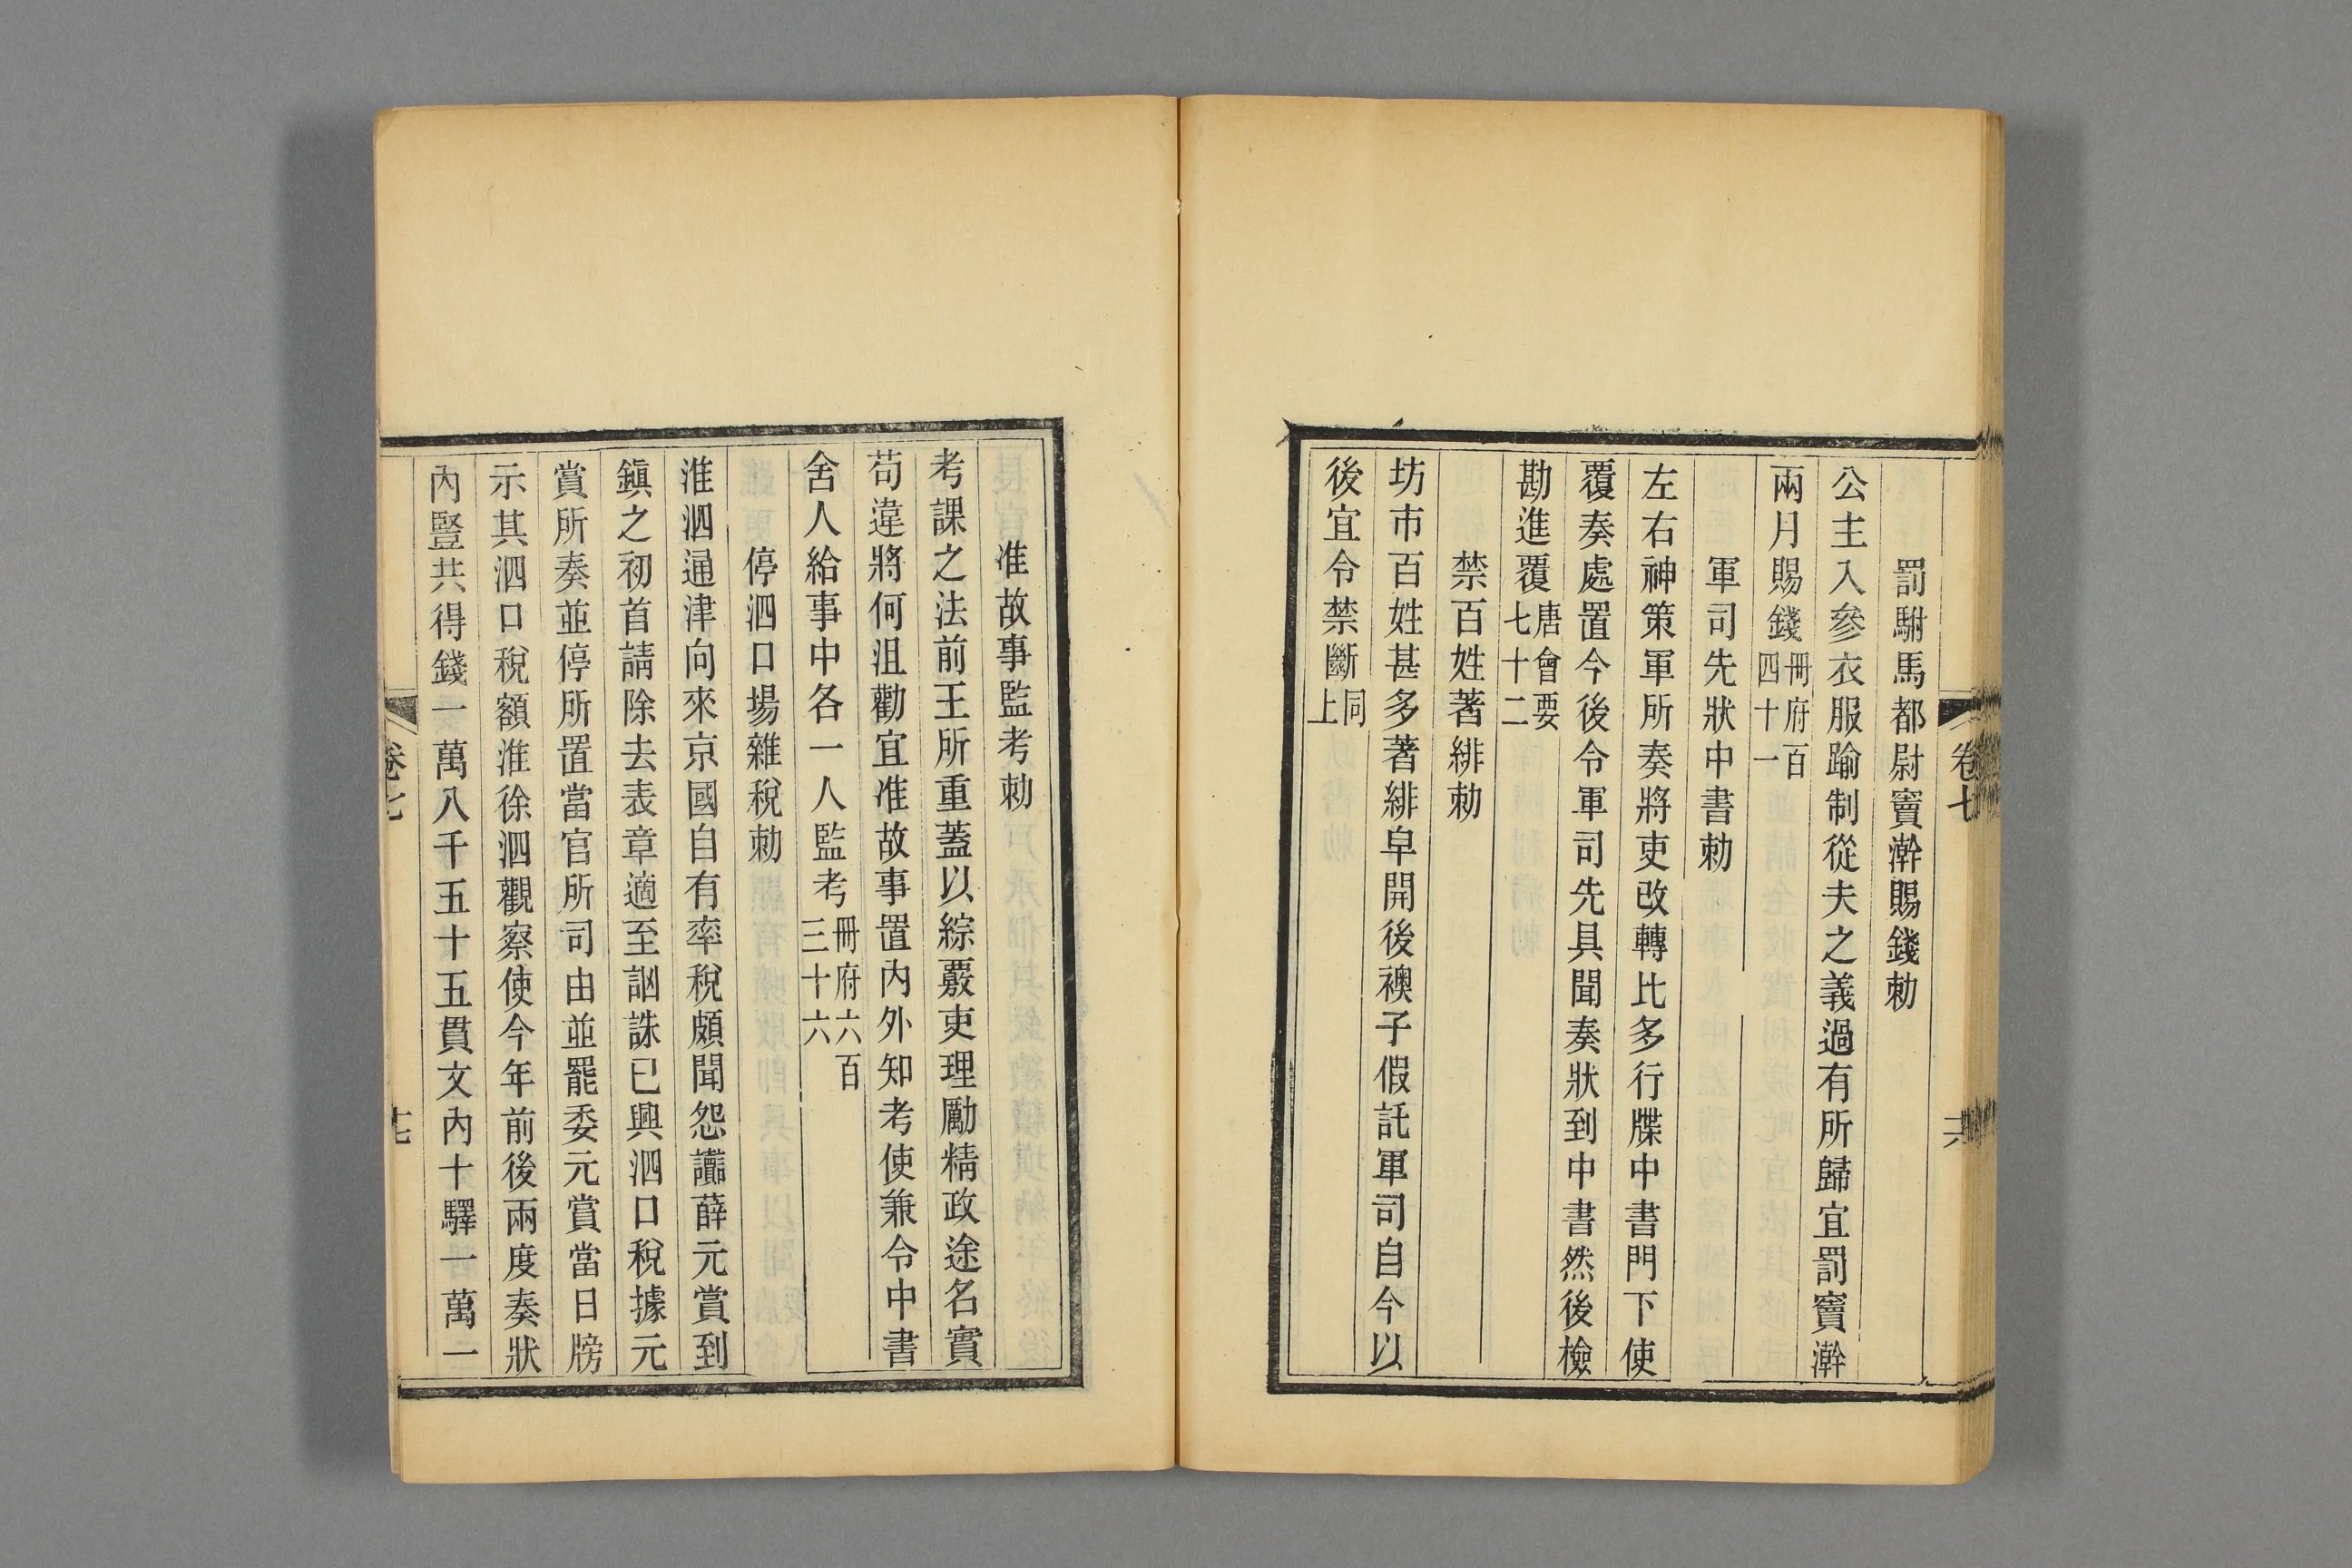 罰駙馬都尉竇澣賜錢勅
公主入參衣服踰制從夫之義過有所歸宜罰竇澣
兩月賜錢冊府百四十一
軍司先狀中書勅
左右神策軍所奏將吏改轉比多行牒中書門下使
覆奏處置今後令軍司先具聞奏狀到中書然後檢
勘進覆唐會要七十二
禁百姓著緋勅
坊市百姓甚多著緋皁開後襖子假託軍司自今以
後宜令禁斷同上
卷七
准故事監考勅
考課之法前王所重蓋以綜覈吏理勵精政途名實
苟違將何沮勸宜准故事置內外知考使兼令中書
舍人給事中各一人監考冊府六百三十六
停泗口場雜稅勅
淮泗通津向來京國自有率稅頗聞怨讟薛元賞到
鎮之初首請除去表章適至詶誅已興泗口稅據元
賞所奏並停所置當官所司由並罷委元賞當日牓
示其泗口稅額淮徐泗觀察使今年前後兩度奏狀
內豎共得錢一萬八千五十五貫文內十驛一萬一
卷七
十七